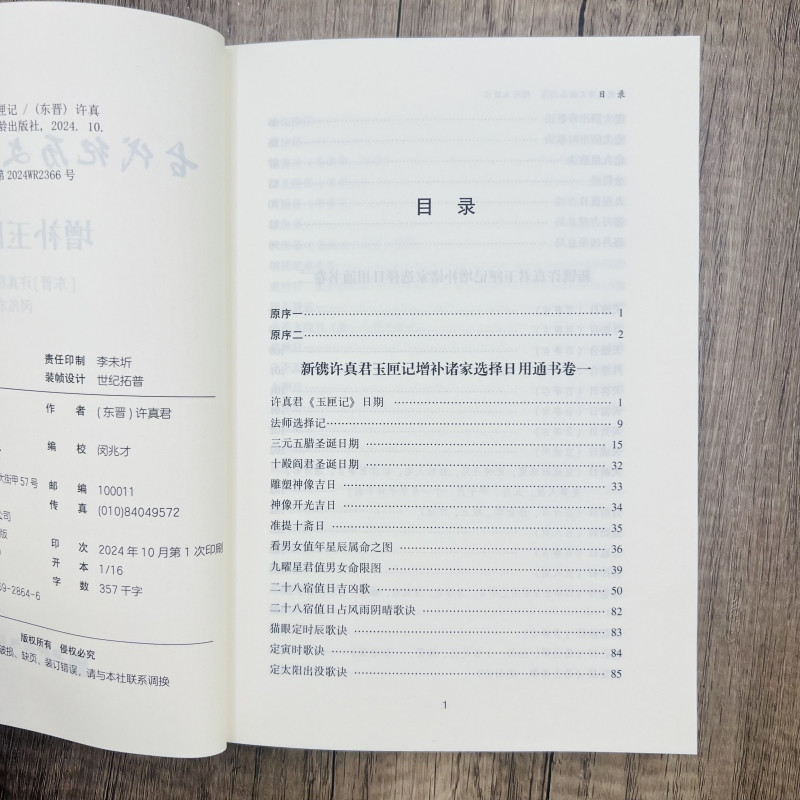 匣记 / (东晋) 许真
龄出版社, 2024. 10.
第 2024WR2366 号
责任印制 李未圻
装帧设计 世纪拓普
作 者 (东晋) 许真君
编 校 闵兆才
大街甲 57 号
邮 编 100011
传 真 (010)84049572
公司
版
印 次 2024 年 10 月第 1 次印刷
开 本 1/16
字 数 357 千字
59-2864-6
版权所有 侵权必究
破损、缺页、装订错误，请与本社联系调换
目 录
目 录
原序一 1
原序二 2
新镌许真君玉匣记增补诸家选择日用通书卷一
许真君《玉匣记》日期 1
法师选择记 9
三元五腊圣诞日期 15
十殿阎君圣诞日期 32
雕塑神像吉日 33
神像开光吉日 34
准提十斋日 35
看男女值年星辰属命之图 36
九曜星君值男女命限图 39
二十八宿值日吉凶歌 50
二十八宿值日占风雨阴晴歌诀 82
猫眼定时辰歌诀 83
定寅时歌诀 84
定太阳出没歌诀 85
1